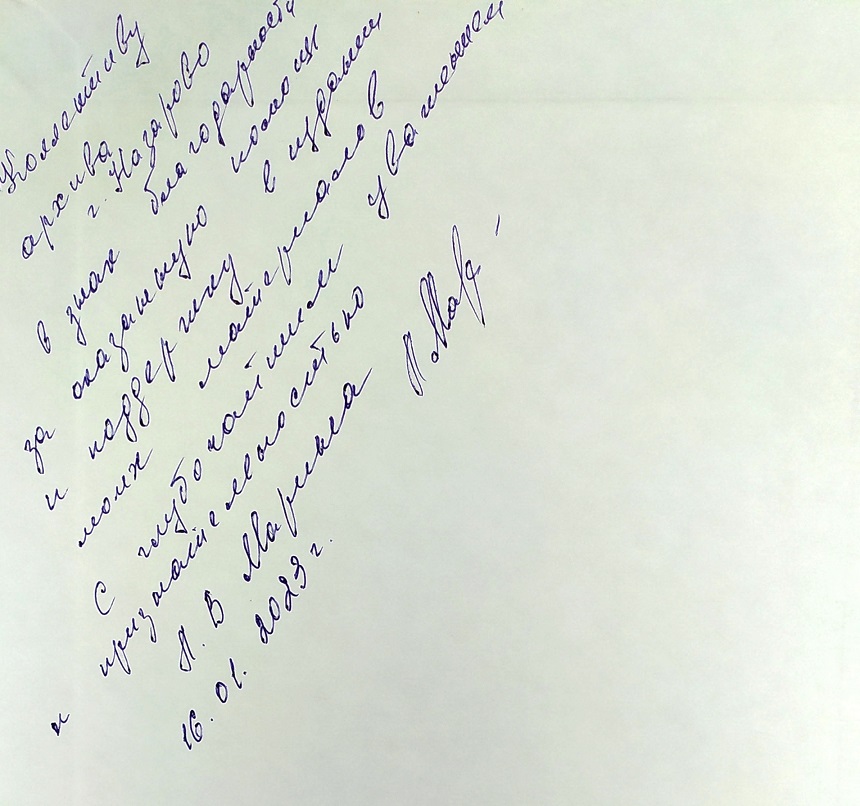 Коллективу
архива
г. Назарово
в знак благодарности
за оказанную помощь
и поддержку в издании
моих материалов
С глубочайшим уважением
и признательностью
Л. В Марьина Л.Мар-
16. 01. 2023 г.